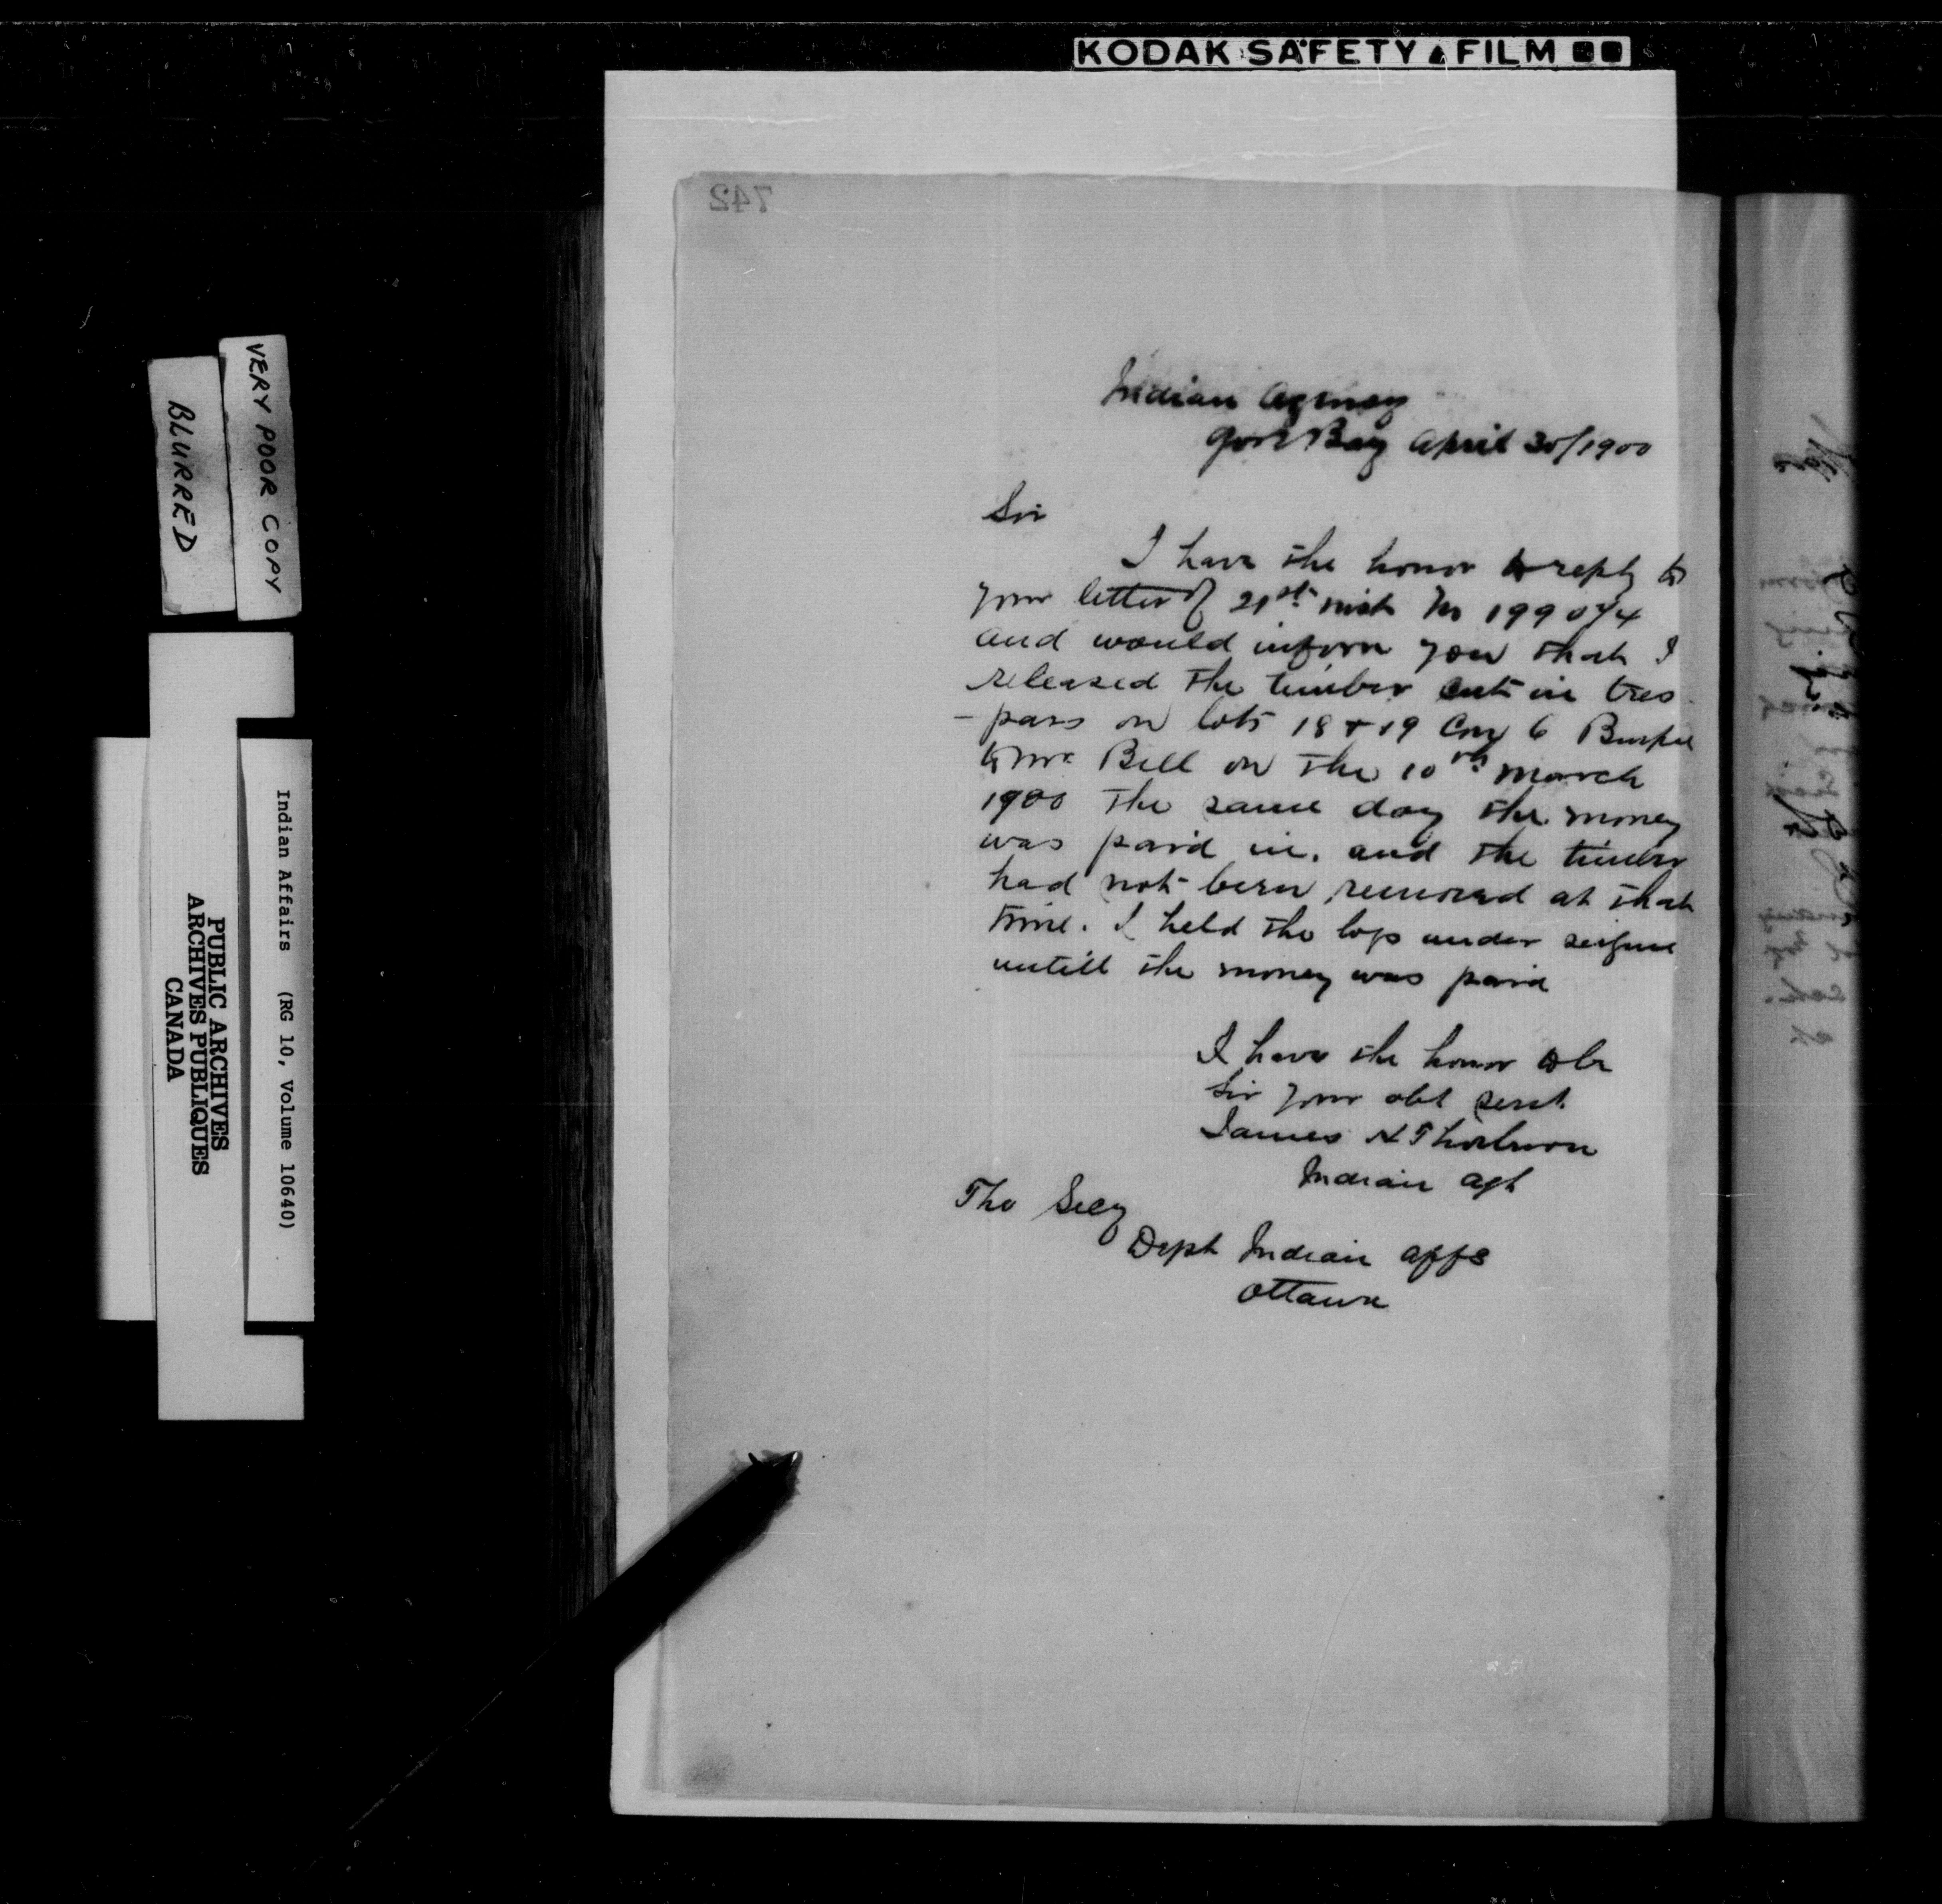 KODAK SAFETY FILM
742
Indian Agency
Gore Bay April 30/1900
Sir
I have the honor to reply to
your letter of 21st inst No 199074
and would inform you that I
released the timber cut in tres
-pass on lots 18 & 19 Con 6 Burpee
to Mr Bell on the 10th March
1900 the same day the money
was paid in. and the timber
had not been removed at that
time. I held the logs under seizure
untill the money was paid
I have the honor to be
Sir your obt servt
James H Thorburn
Indian Agt
The Secy
Dept Indian Affs
Ottawa
VERY POOR COPY
BLURRED
Indian Affairs (RG 10, Volume 10640)
PUBLIC ARCHIVES
ARCHIVES PUBLIQUES
CANADA